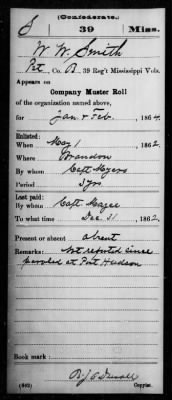 (Confederate.)
S 39 Miss.
W. W. Smith
Pvt, Co. B, 39 Reg't Mississippi Vols.
Appears on
Company Muster Roll
of the organization named above,
for Jan & Feb, 1864.
Enlisted:
When May 1, 1862.
Where Brandon
By whom Capt Myers
Period 3 yrs
Last paid:
By whom Capt Magee
To what time Dec 31, 1862.
Present or absent absent
Remarks: Not reported since
paroled at Port Hudson
Book mark:
(642)
Copyist.